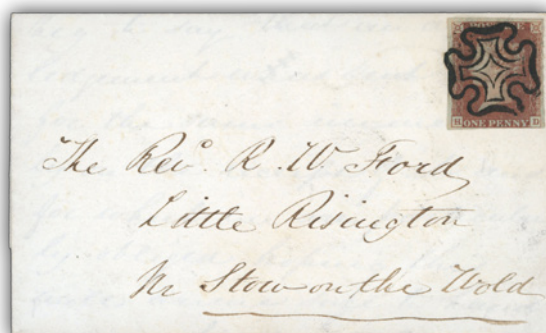 POSTAGE
H ONE PENNY D
The Revd. R. W. Ford
Little Risington
Nr Stow on the Wold